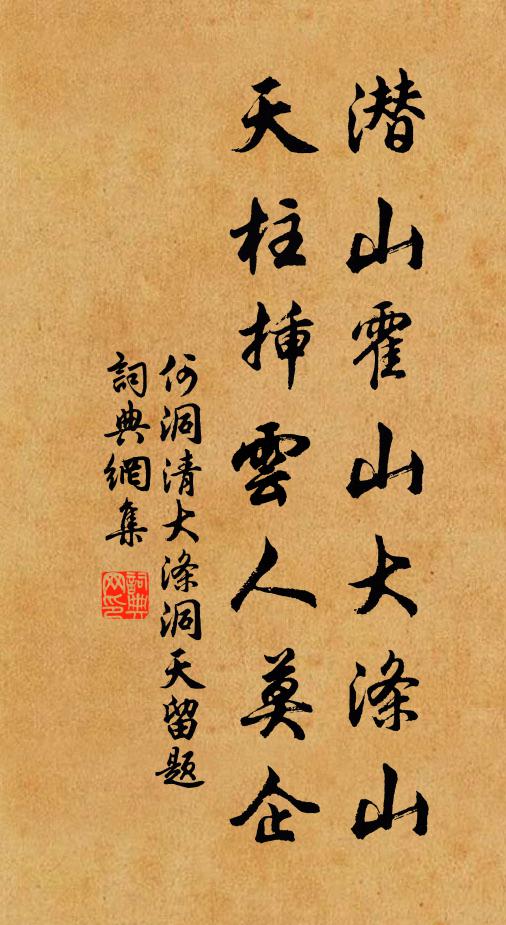 潜山霍山大涤山
天柱挿雲人莫企
何洞清大涤洞天留题
詞典網集
詞典网印